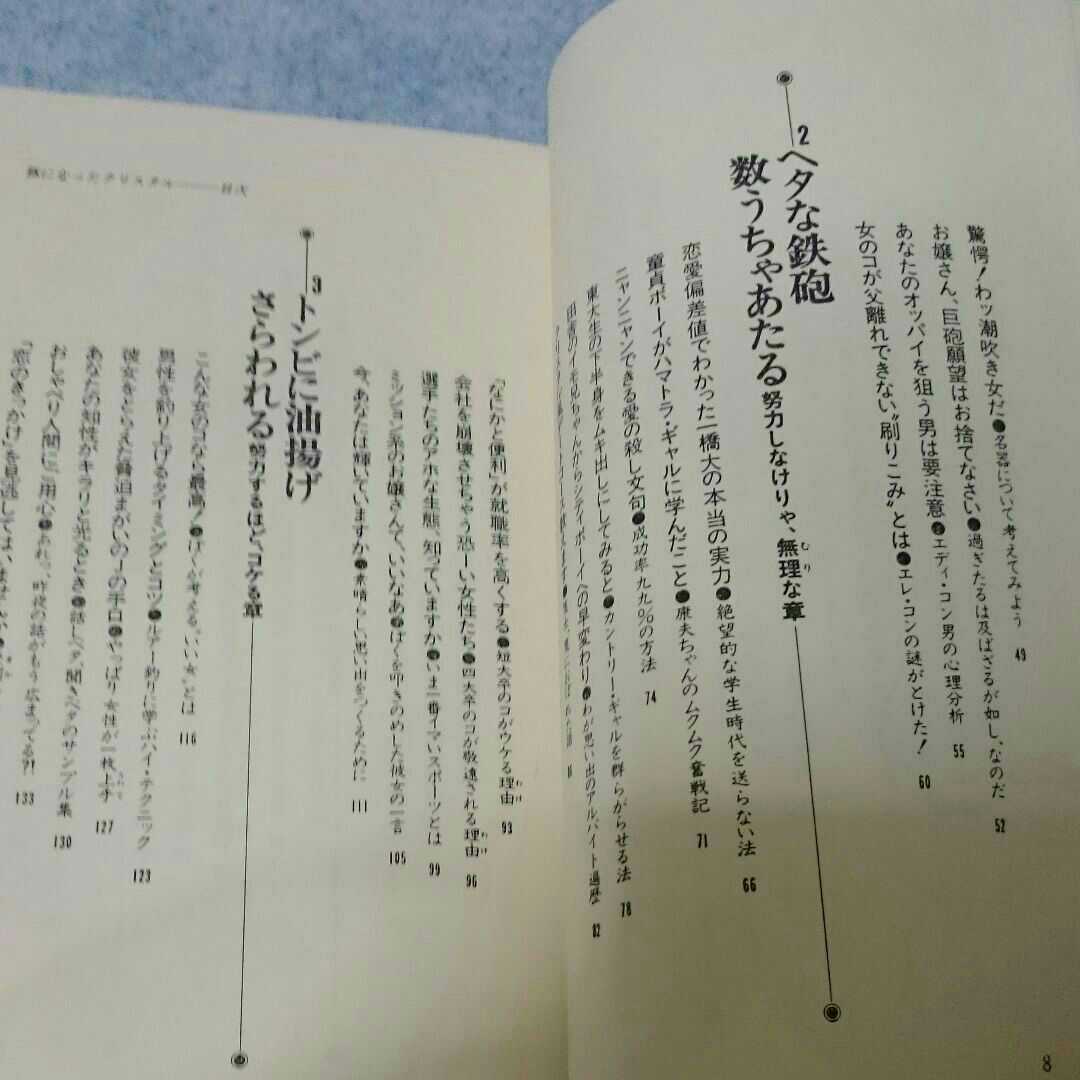 驚愕！わッ潮吹き女だ●名器について考えてみよう 49
お嬢さん、巨砲願望はお捨てなさい●過ぎたるは及ばざるが如し、なのだ 52
あなたのオッパイを狙う男は要注意●エディ・コン男の心理分析 55
女のコが父離れできない〝刷りこみ〟とは●エレ・コンの謎がとけた！ 60
2 ヘタな鉄砲
数うちゃあたる 努力しなけりゃ、無理な章
むり
恋愛偏差値でわかった一橋大の本当の実力●絶望的な学生時代を送らない法 66
童貞ボーイがハマトラ・ギャルに学んだこと●康夫ちゃんのムクムク奮戦記 71
ニャンニャンできる愛の殺し文句●成功率九九％の方法 74
東大生の下半身をムキ出しにしてみると●カントリー・ギャルを群らがらせる法 78
田舎のイモ兄ちゃんからシティボーイへの早変わり●わが思い出のアルバイト遍歴 82
8
熱になったクリスタル――目次
「なにかと便利」が就職率を高くする●短大卒のコがウケる理由 93
わけ
会社を崩壊させちゃう恐ーい女性たち●四大卒のコが敬遠される理由 96
わけ
選手たちのアホな生態、知っていますか●いま一番イマいスポーツとは 99
ミッション系のお嬢さんて、いいなあ●ぼくを叩きのめした彼女の一言 105
今、あなたは輝いていますか●素晴らしい思い出をつくるために 111
3 トンビに油揚げ
さらわれる 努力するほど、コケる章
こんな女のコなら最高！●ぼくが考える〝いい女〟とは 116
男性を釣り上げるタイミングとコツ●ルアー釣りに学ぶハイ・テクニック 123
彼女をとらえた脅迫まがいの一の手口●やっぱり女性が一枚上手 127
うわて
あなたの知性がキラリと光るとき●話しベタ、聞きベタのサンプル集 130
おしゃべり人間にご用心●あれっ、昨夜の話がもう広まってる?! 133
「恋のきっかけ」を見逃しては、いませんか